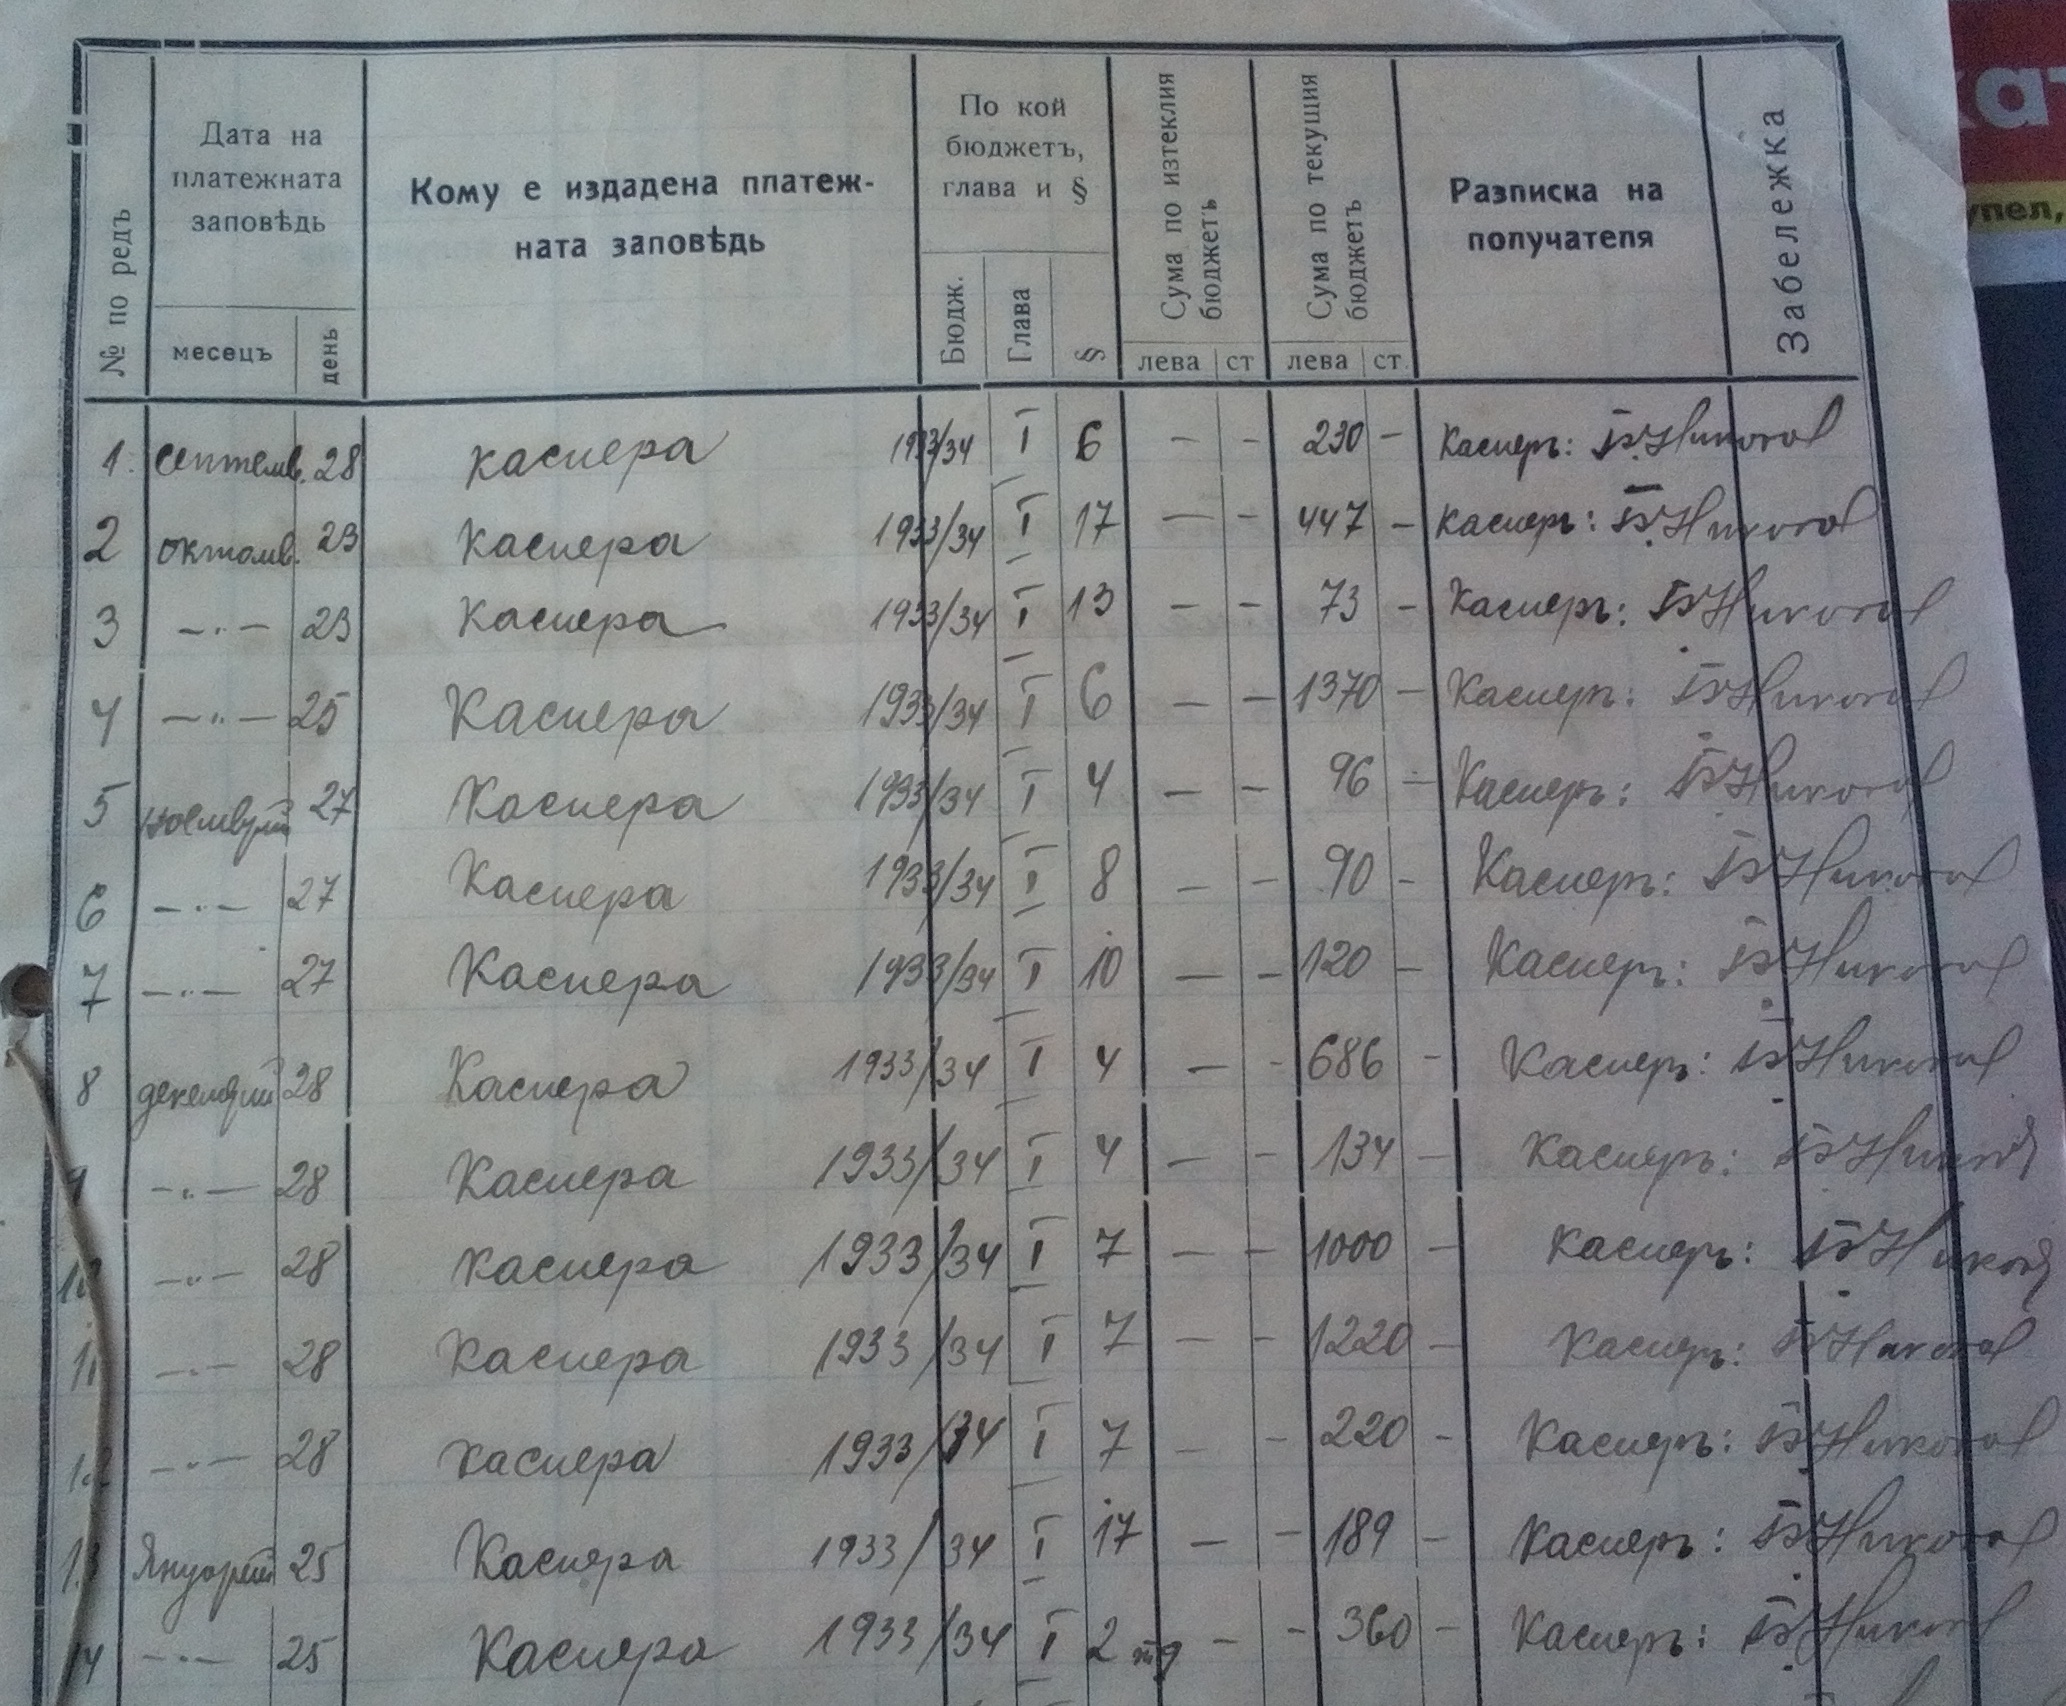 № по редъ
Дата на
платежната
заповѣдь
месецъ
день
Кому е издадена платеж-
ната заповѣдь
По кой
бюджетъ,
глава и §
Бюдж.
Глава
§
Сума по изтеклия
бюджетъ
лева ст
Сума по текущия
бюджетъ
лева ст.
Разписка на
получателя
Забележка
1. септемв. 28 касиера 1933/34 I 6 – – 230 – Касиеръ: Б. Николов
2 октомв. 23 Касиера 1933/34 I 17 – – 447 – Касиеръ: Б. Николов
3 –"– 23 Касиера 1933/34 I 13 – – 73 – Касиеръ: Б. Николов
4 –"– 25 Касиера 1933/34 I 6 – – 1370 – Касиеръ: Б. Николов
5 ноемврий 27 Касиера 1933/34 I 4 – – 96 – Касиеръ: Б. Николов
6 –"– 27 Касиера 1933/34 I 8 – – 90 – Касиеръ: Б. Николов
7 –"– 27 Касиера 1933/34 I 10 – – 120 – Касиеръ: Б. Николов
8 декемврий 28 Касиера 1933/34 I 4 – – 686 – Касиеръ: Б. Николов
9 –"– 28 Касиера 1933/34 I 4 – – 134 – Касиеръ: Б. Николов
10 –"– 28 Касиера 1933/34 I 7 – – 1000 – Касиеръ: Б. Николов
11 –"– 28 Касиера 1933/34 I 7 – – 1220 – Касиеръ: Б. Николов
12 –"– 28 Касиера 1933/34 I 7 – – 220 – Касиеръ: Б. Николов
13 Януарий 25 Касиера 1933/34 I 17 – – 189 – Касиеръ: Б. Николов
14 –"– 25 Касиера 1933/34 I 2 – – 360 – Касиеръ: Б. Николов